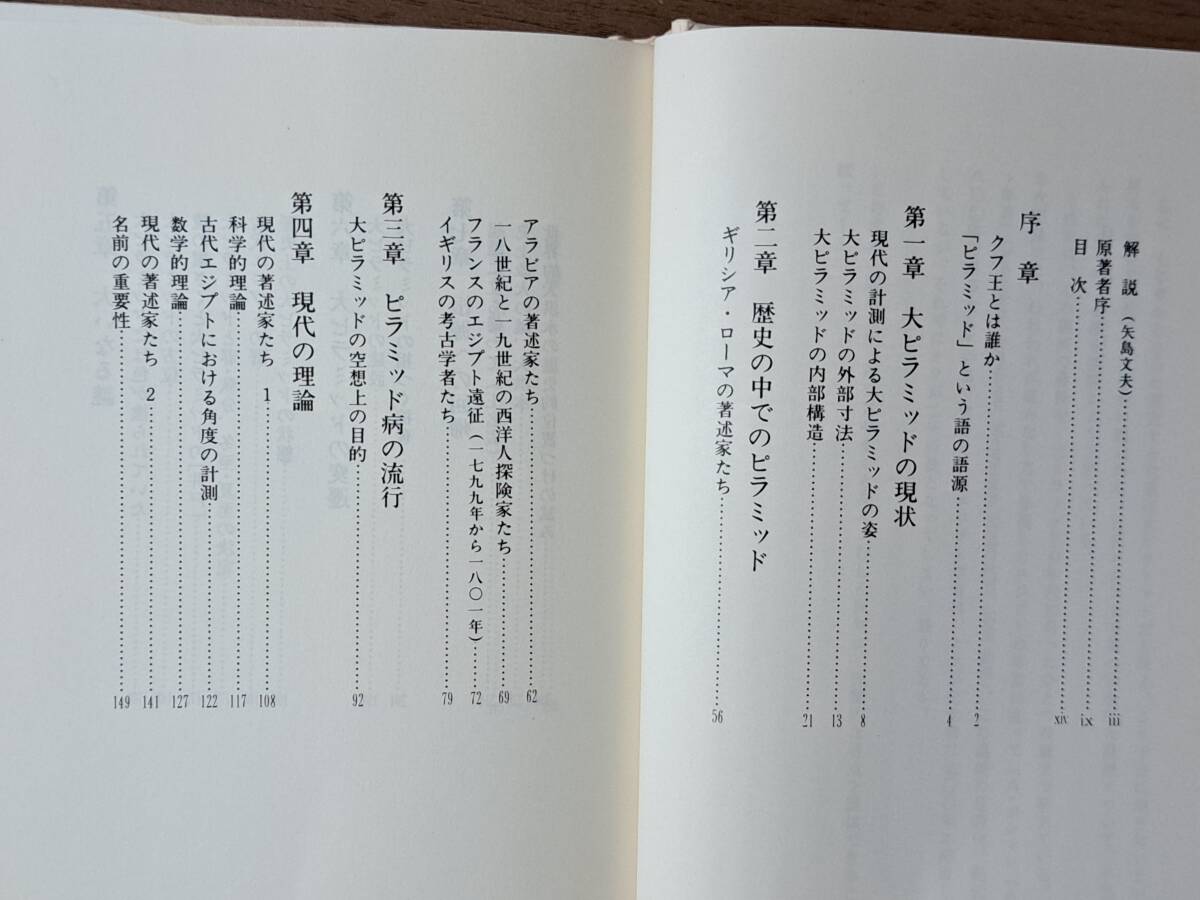 解説（矢島文夫）……iii
原著者序……ix
目次……xiv
序章
クフ王とは誰か……2
「ピラミッド」という語の語源……4
第一章　大ピラミッドの現状
現代の計測による大ピラミッドの姿……8
大ピラミッドの外部寸法……13
大ピラミッドの内部構造……21
第二章　歴史の中でのピラミッド
ギリシア・ローマの著述家たち……56
アラビアの著述家たち……62
一八世紀と一九世紀の西洋人探険家たち……69
フランスのエジプト遠征（一七九九年から一八〇一年）……72
イギリスの考古学者たち……79
第三章　ピラミッド病の流行
大ピラミッドの空想上の目的……92
第四章　現代の理論
現代の著述家たち　1……108
科学的理論……117
古代エジプトにおける角度の計測……122
数学的理論……127
現代の著述家たち　2……141
名前の重要性……149